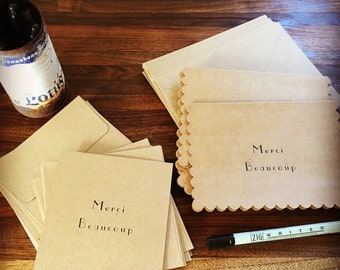 Merci
Beaucoup
Merci
Beaucoup
ZIG WRITER